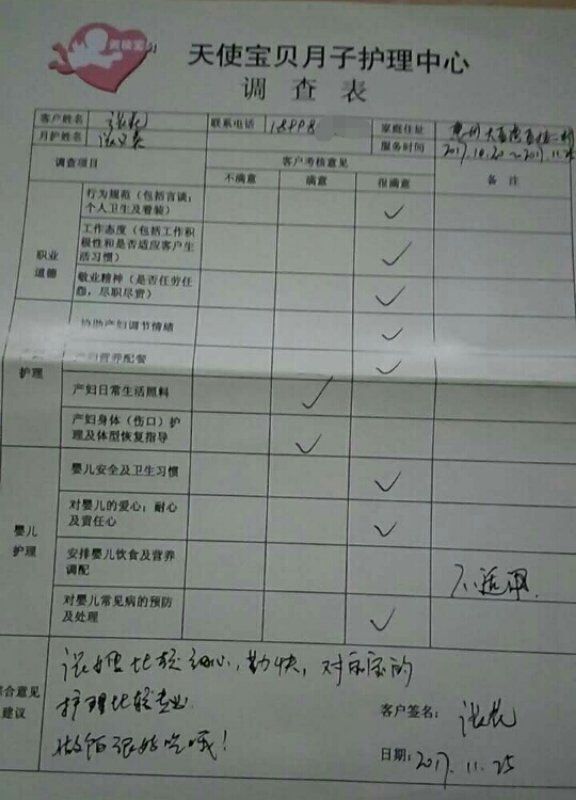 天使宝贝月子护理中心
调查表
客户姓名 联系电话 18898 家庭住址
月护姓名 服务时间 2017.10.20～2017.11.
调查项目 客户考核意见 备注
不满意 满意 很满意
职业道德
行为规范（包括言谈；个人卫生及着装） ✓
工作态度（包括工作积极性和是否适应客户生活习惯） ✓
敬业精神（是否任劳任怨，尽职尽责） ✓
护理
协助产妇调节情绪 ✓
产妇营养配餐 ✓
产妇日常生活照料 ✓
产妇身体（伤口）护理及体型恢复指导 ✓
婴儿护理
婴儿安全及卫生习惯 ✓
对婴儿的爱心；耐心及责任心 ✓
安排婴儿饮食及营养调配 不适用
对婴儿常见病的预防及处理 ✓
综合意见建议
张姐比较细心，勤快，对宝宝的
护理比较专业
做饭很好吃哦！
客户签名：
日期：2017.11.25